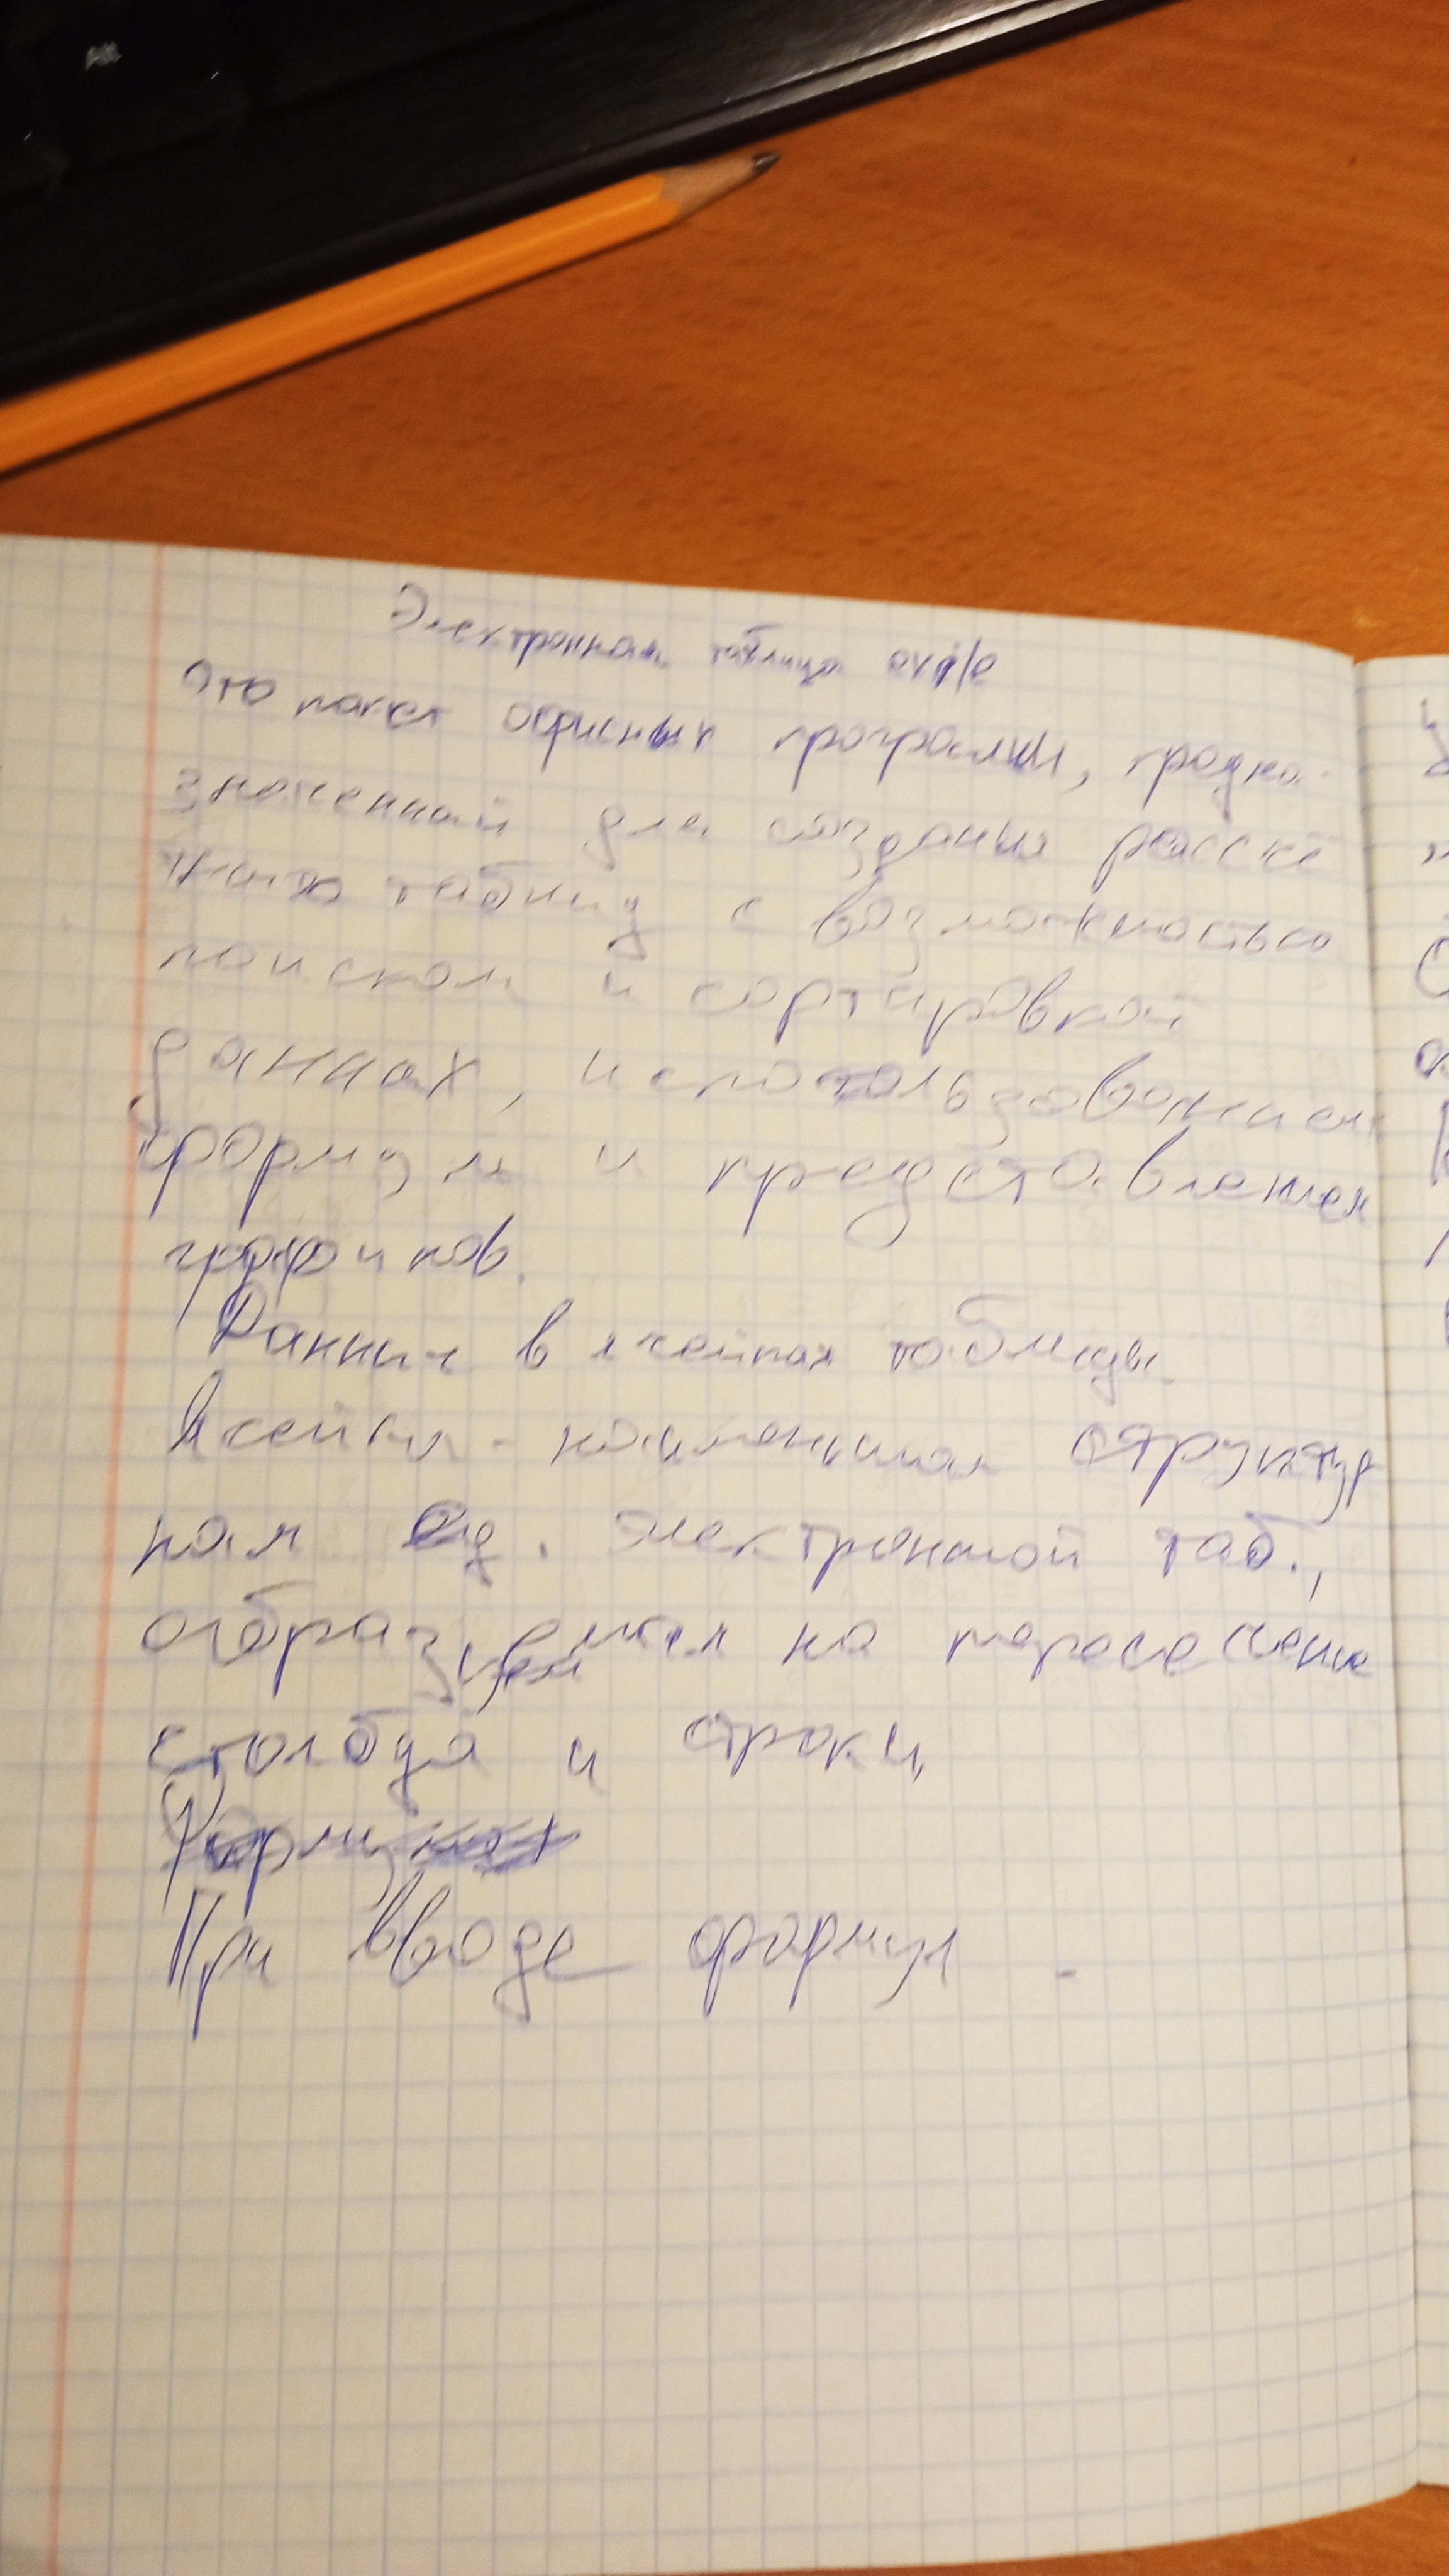 Электронная таблица
Это пакет офисных программ, предна-
значенный для создания рассчё
тных таблиц с возможностью
поиском и сортировкой
данных, использованием
формул и представления
графиков.
Данные в ячейках таблицы.
Ячейка - наименьшая структур
ная ед. электронной таб.,
образуемая на пересечение
столбца и строки,
При вводе формул -